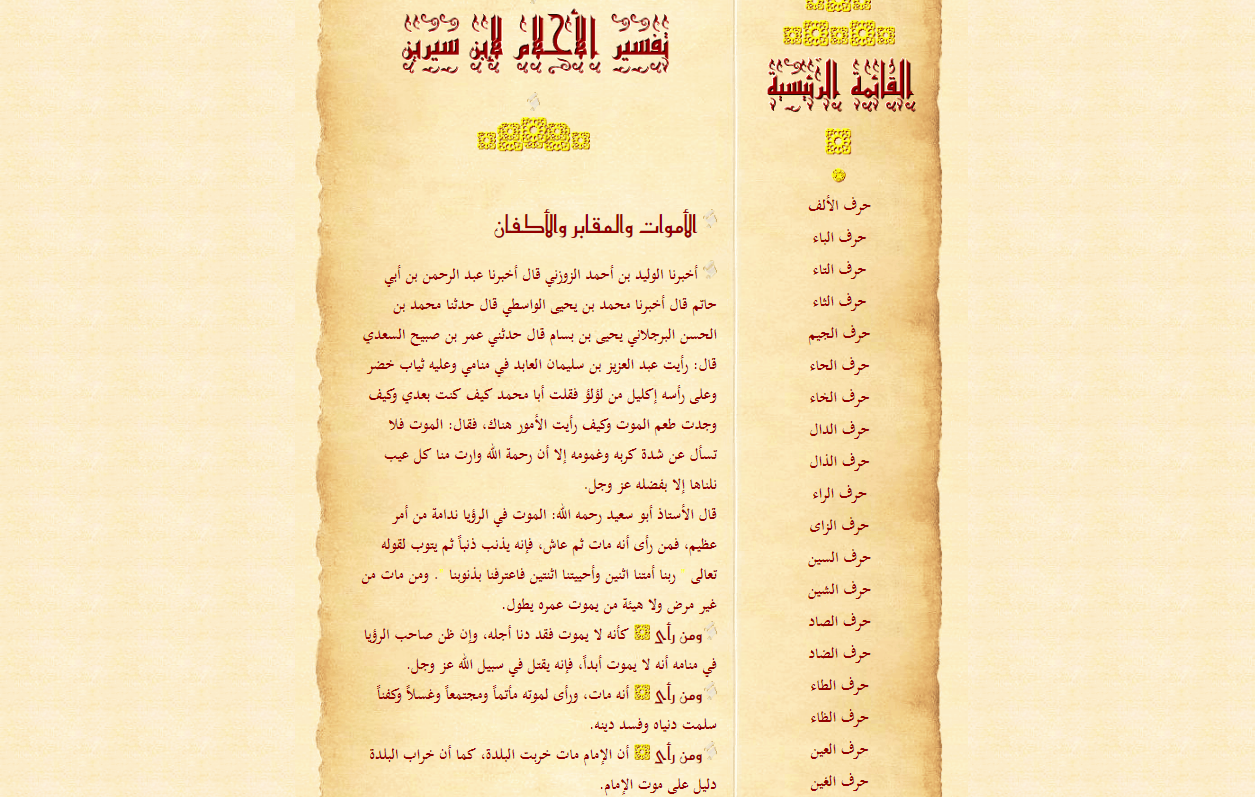 تفسير الأحلام لإبن سيرين
الأموات والمقابر والأكفان
أخبرنا الوليد بن أحمد الزوزني قال أخبرنا عبد الرحمن بن أبي
حاتم قال أخبرنا محمد بن يحيى الواسطي قال حدثنا محمد بن
الحسن البرجلاني يحيى بن بسام قال حدثني عمر بن صبيح السعدي
قال: رأيت عبد العزيز بن سليمان العابد في منامي وعليه ثياب خضر
وعلى رأسه إكليل من لؤلؤ فقلت أبا محمد كيف كنت بعدي وكيف
وجدت طعم الموت وكيف رأيت الأمور هناك، فقال: الموت فلا
تسأل عن شدة كربه وغمومه إلا أن رحمة الله وارت منا كل عيب
نلناها إلا بفضله عز وجل.
قال الأستاذ أبو سعيد رحمه الله: الموت في الرؤيا ندامة من أمر
عظيم، فمن رأى أنه مات ثم عاش، فإنه يذنب ذنباً ثم يتوب لقوله
تعالى ربنا أمتنا اثنين وأحييتنا اثنتين فاعترفنا بذنوبنا . ومن مات من
غير مرض ولا هيئة من يموت عمره يطول.
ومن رأى كأنه لا يموت فقد دنا أجله، وإن ظن صاحب الرؤيا
في منامه أنه لا يموت أبداً، فإنه يقتل في سبيل الله عز وجل.
ومن رأى أنه مات، ورأى لموته مأتماً ومجتمعاً وغسلاً وكفناً
سلمت دنياه وفسد دينه.
ومن رأى أن الإمام مات خربت البلدة، كما أن خراب البلدة
دليل على موت الإمام.
القائمة الرئيسية
حرف الألف
حرف الباء
حرف التاء
حرف الثاء
حرف الجيم
حرف الحاء
حرف الخاء
حرف الدال
حرف الذال
حرف الراء
حرف الزاى
حرف السين
حرف الشين
حرف الصاد
حرف الضاد
حرف الطاء
حرف الظاء
حرف العين
حرف الغين